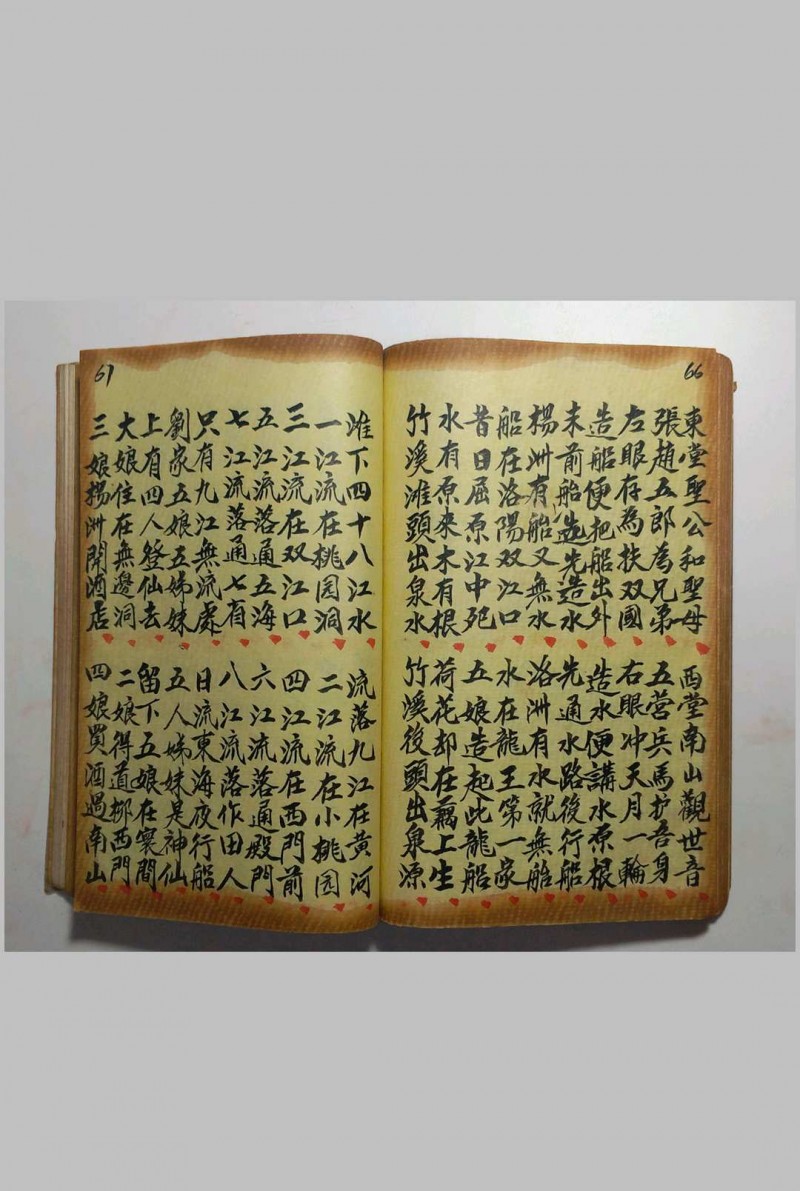 66
東堂聖公和聖母 西堂南山觀世音
張趙五郎為兄弟 五营兵馬护吾身
左眼存為扶双國 右眼冲天月一輪
造船便把船出外 造水便講水原根
未前船造先造水 先通水路後行船
楊洲有船又無水 洛洲有水就無船
船在洛陽双江口 水在龍王第一家
昔日屈原江中死 五娘造起此龍船
水有原來木有根 荷花却在藕上生
竹溪滩頭出泉水 竹溪後頭出泉源
67
滩下四十八江水 流落九江在黄河
一江流在桃园洞 二江流在小桃园
三江流在双江口 四江流在西門前
五江流落通五海 六江流落通殿門
七江流落通七有 八江流落作田人
只有九江無流處 日流東海夜行船
劉家五娘五姊妹 五人姊妹是神仙
上有四人登仙去 留下五娘在寰間
大娘住在無邊洞 二娘得道挷西門
三娘揚洲開酒店 四娘買酒過南山